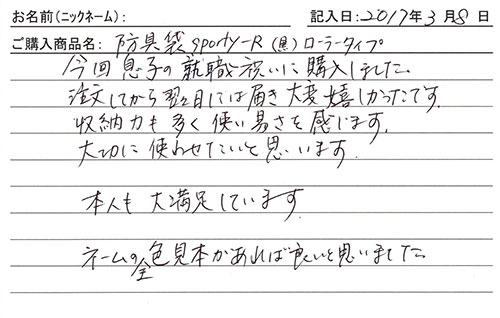 お名前(ニックネーム): 記入日:2017年3月8日
ご購入商品名: 防具袋 sporty-R (黒) ローラータイプ
今回息子の就職祝いに購入しました。
注文してから翌日には届き大変嬉しかったです。
収納力も多く使い易さを感じます。
大切に使わせたいと思います。
本人も大満足しています。
ネームの全色見本があれば良いと思いました。